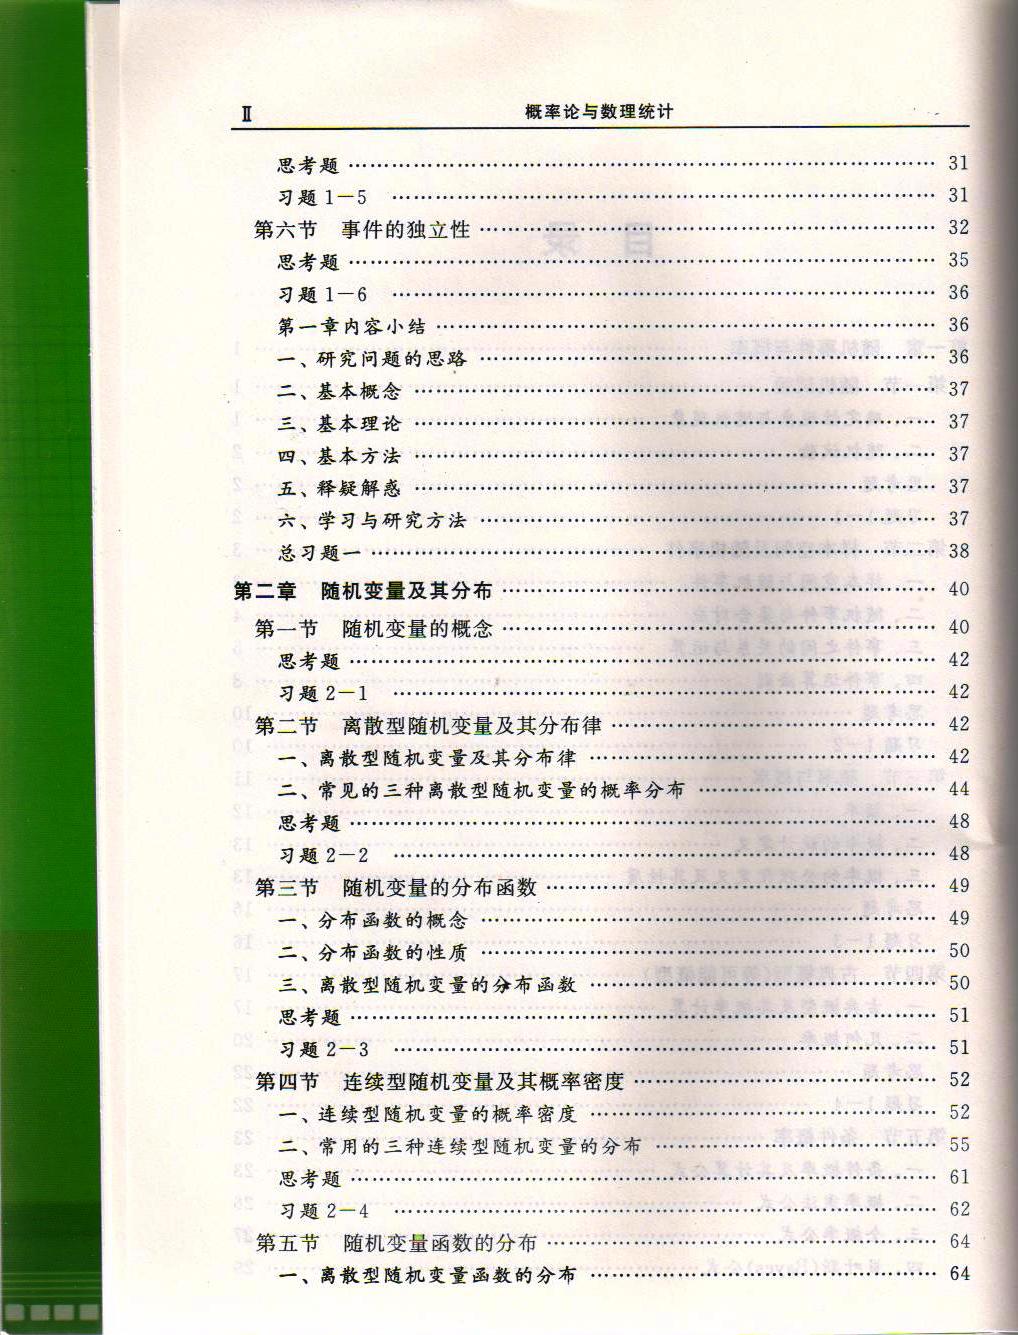 Ⅱ 概率论与数理统计
思考题 …… 31
习题 1—5 …… 31
第六节 事件的独立性 …… 32
思考题 …… 35
习题 1—6 …… 36
第一章内容小结 …… 36
一、研究问题的思路 …… 36
二、基本概念 …… 37
三、基本理论 …… 37
四、基本方法 …… 37
五、释疑解惑 …… 37
六、学习与研究方法 …… 37
总习题一 …… 38
第二章 随机变量及其分布 …… 40
第一节 随机变量的概念 …… 40
思考题 …… 42
习题 2—1 …… 42
第二节 离散型随机变量及其分布律 …… 42
一、离散型随机变量及其分布律 …… 42
二、常见的三种离散型随机变量的概率分布 …… 44
思考题 …… 48
习题 2—2 …… 48
第三节 随机变量的分布函数 …… 49
一、分布函数的概念 …… 49
二、分布函数的性质 …… 50
三、离散型随机变量的分布函数 …… 50
思考题 …… 51
习题 2—3 …… 51
第四节 连续型随机变量及其概率密度 …… 52
一、连续型随机变量的概率密度 …… 52
二、常用的三种连续型随机变量的分布 …… 55
思考题 …… 61
习题 2—4 …… 62
第五节 随机变量函数的分布 …… 64
一、离散型随机变量函数的分布 …… 64